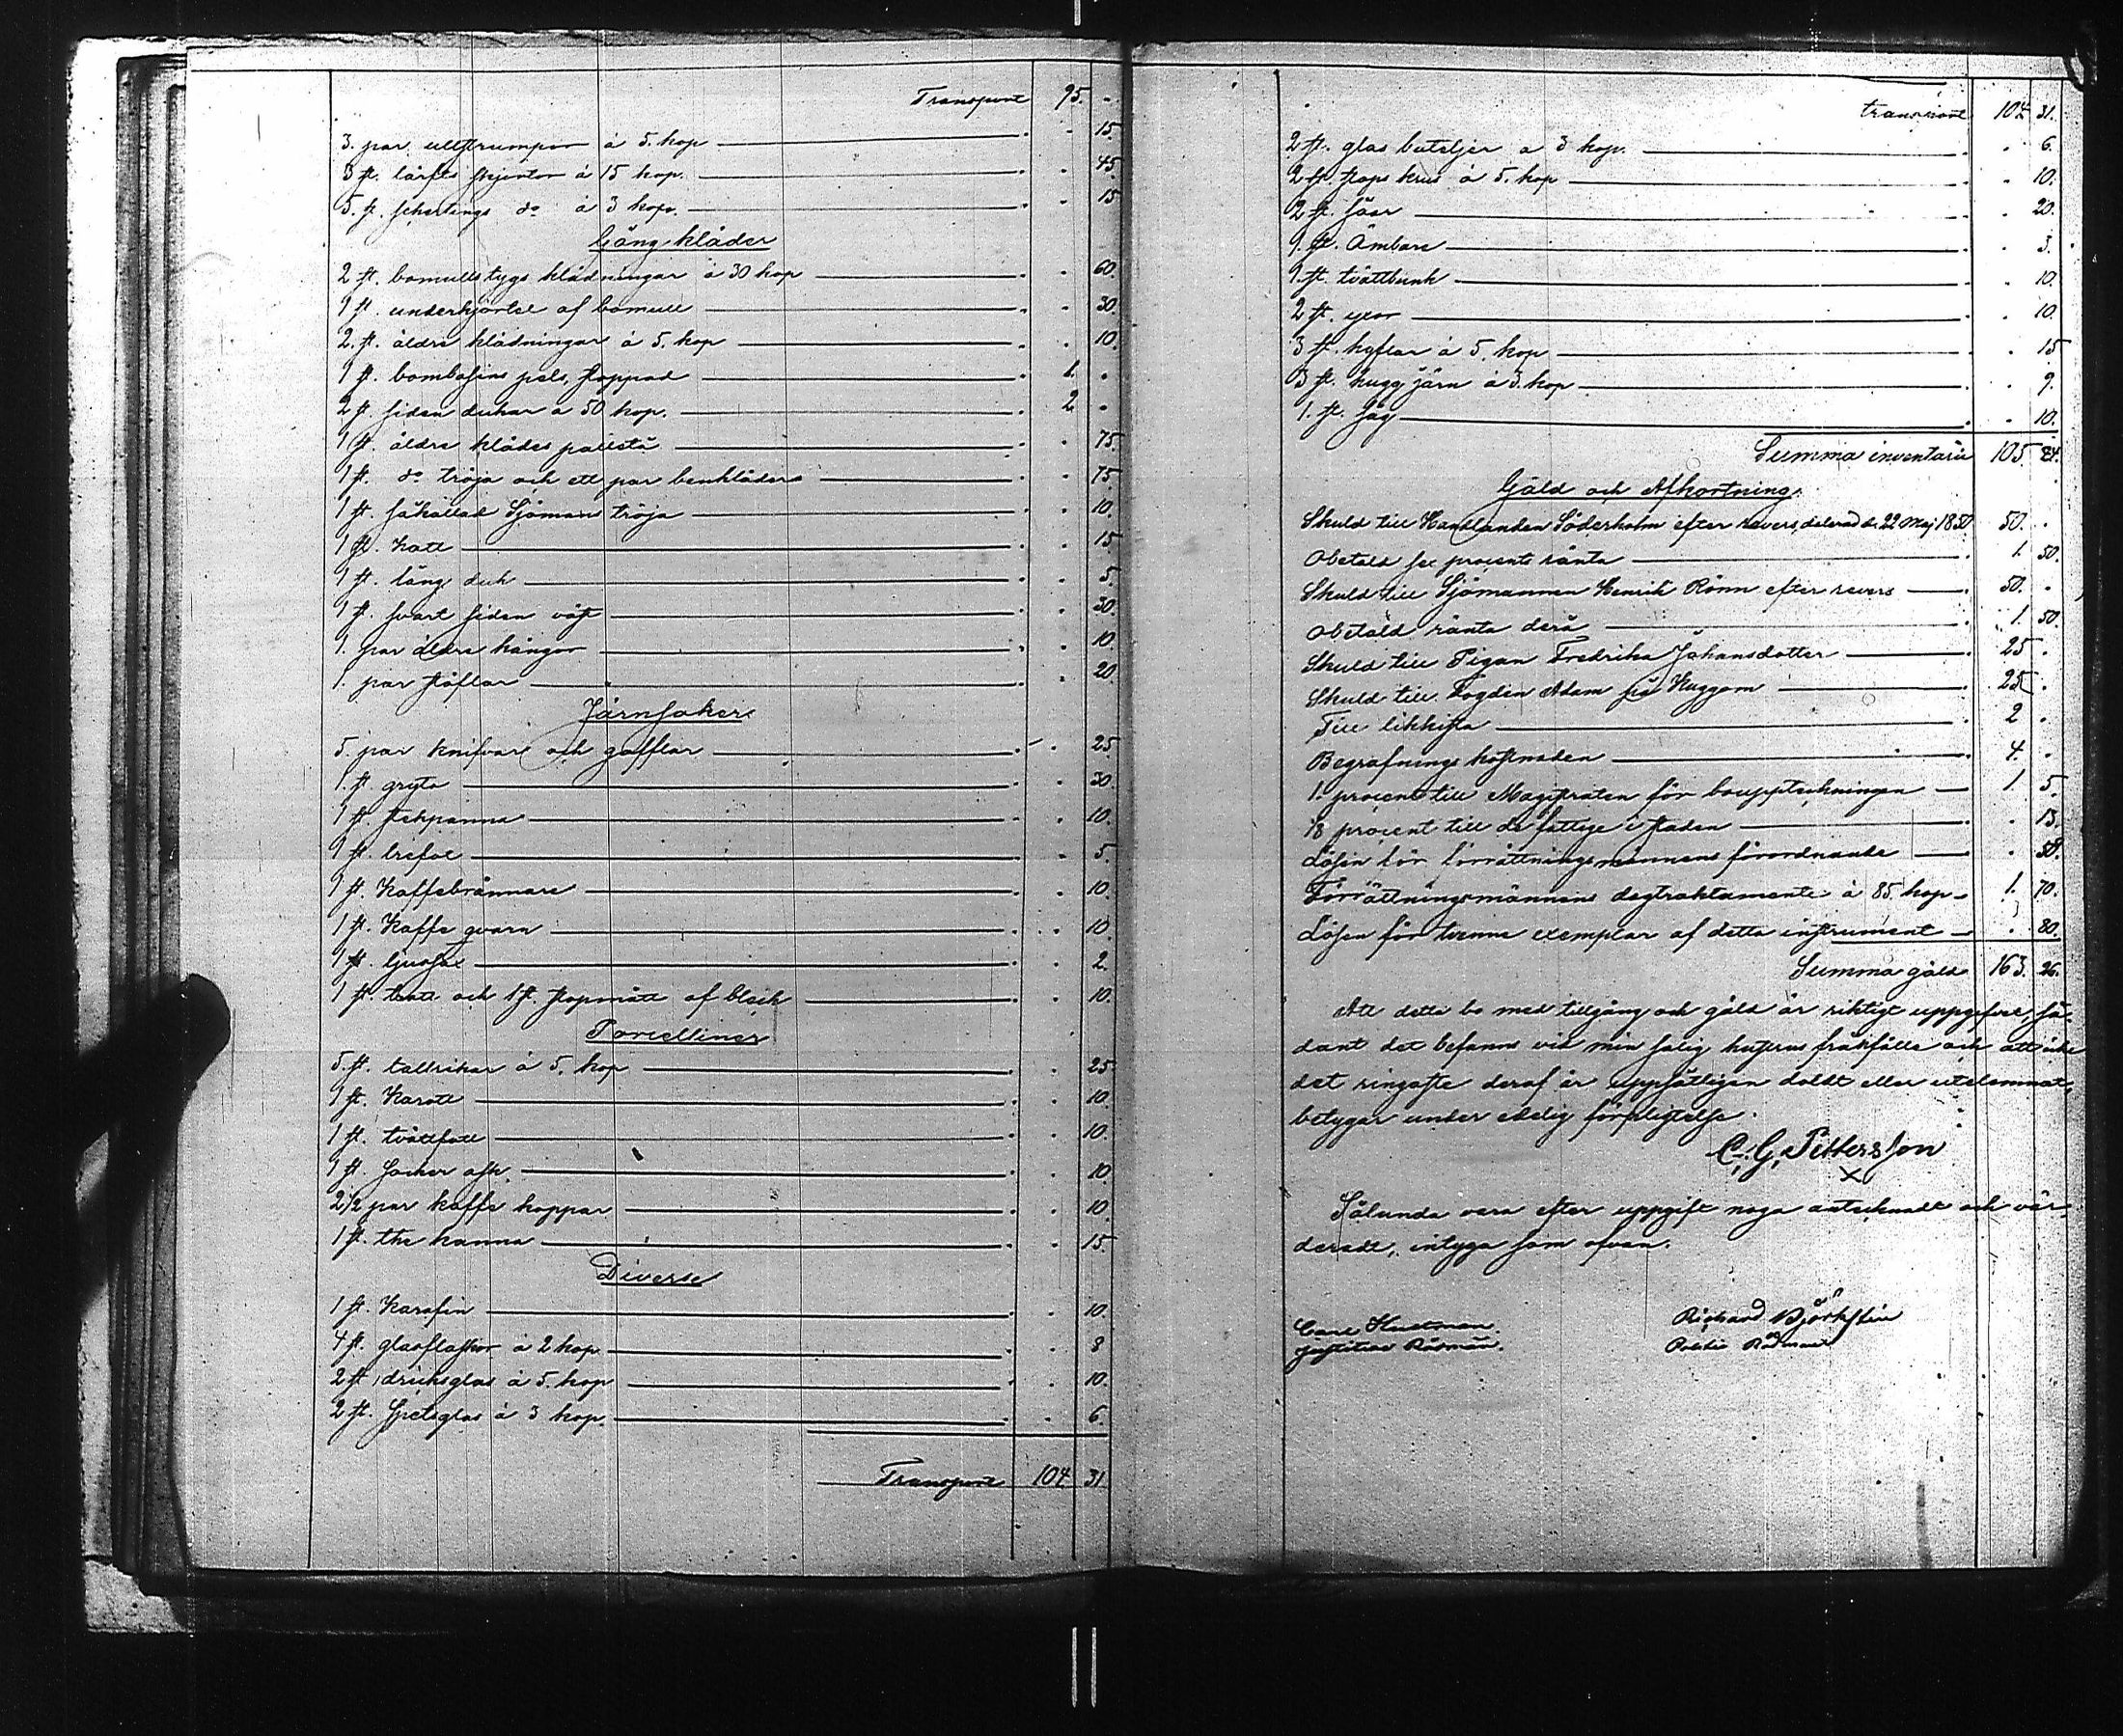 Transport 95. -
3. par ullstrumpor à 5. kop - 15.
3 st. lärfts skjortor à 15 kop. - 45
5. st. schertings do à 3 kop. - 15
Gång kläder
2 st. bomullstygs klädningar à 30 kop - 60.
1 st. underkjortel af bomull - 30.
2. st. äldre klädningar à 5. kop - 10.
1 st. bombasins pels, stoppad 1. -
2 st. siden dukar à 50 kop. 2 -
1 st. äldre klädes paletå - 75.
1 st. do tröja och ett par benkläder - 75.
1 st. såkallad Sjömans tröja - 10.
1 st. hatt - 15
1 st. lång duk - 5.
1 st. svart siden väst - 30.
1. par äldre kängor - 10.
1. par stöflar - 20
Järnsaker
5. par knifvar och gafflar - 25
1. st gryta - 30.
1 st stekpanna - 10.
1 st. trefot - 5.
1 st. Kaffebrännare - 10.
1 st. Kaffe qvarn - 10
1 st. ljussax - 2.
1 st. tratt och 1 st. stopmått af bleck - 10.
Porcelliner
5. st. tallrikar à 5. kop - 25
1 st. Karott - 10.
1 st. tvättfatt - 10.
1 st. socker ask - 10.
2 1/2 par kaffe koppar - 10.
1 st. the kanna - 15.
Diverse
1 st. Karafin - 10.
4 st. glasflaskor à 2 kop - 8
2 st dricksglas à 5. kop - 10.
2 st. Spetsglas à 3 kop. - 6.
Transport 104 31
transport 104 31.
2 st. glas buteljer a 3 kop. - 6.
2 st. stops krus à 5. kop - 10.
2 st. såar - 20.
1. st. Ämbare - 3.
1 st. tvättbunk - 10.
2 st. yxor - 10.
3 st. hyflar à 5. kop - 15
3 st. hugg järn à 3. kop - 9.
1. st. såg - 10.
Summa inventarie 105. 24.
Gäld och Afkortning.
Skuld till Handlanden Söderholm efter revers dalerad d. 22 Maj 1850 50. -
Obetald sex procents ränta 1. 50.
Skuld till Sjömannen Henrik Rönn efter revers 50. -
Obetald ränta derå 1. 50.
Skuld till Pigan Fredrika Johansdotter 25 -
Skuld till Fogden Adam på Kuggom 25 -
Till likkista 2 -
Begrafnings kostnaden 4. -
1. procent till Magistraten för bouppteckningen 1 5.
1/8 procent till de fattige i staden - 13.
Lösen för förrättningsmännens förordnande - 58.
Förrättningsmännens dagtraktamente à 85. kop 1. 70.
Lösen för tvenne exemplar af detta instrument - 80.
Summa gäld 163. 26.
Att detta bo med tillgång och gäld är riktigt uppgifvet, så-
dant det befanns vid min salig hustrus frånfälle och att icke
det ringaste deraf är uppsåtligen doldt eller utelemnat,
betygar under edelig förpligtelse.
C. G. Pettersson
X
Sålunda vara efter uppgift noga antecknadt och vär-
deradt, intyga som ofvan.
Carl Hultman. Richard Björksten
Justitiae Rådman. Politie Rådman